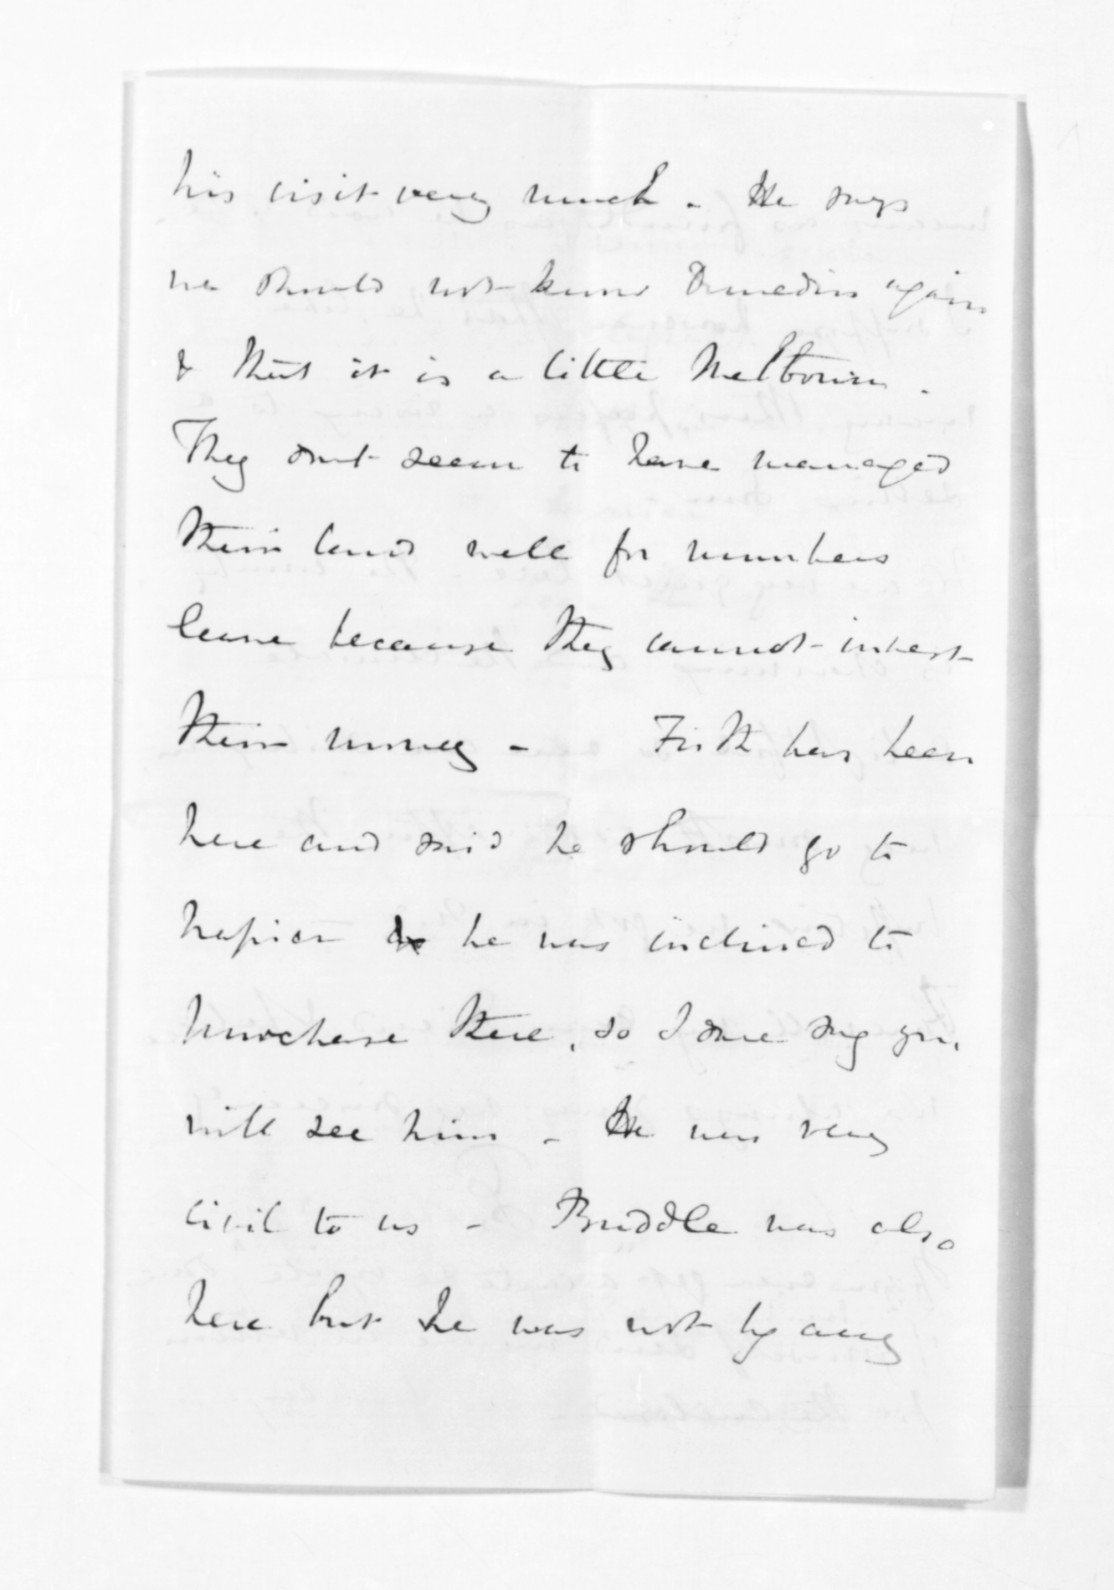 his visit very much - He says
we should not know Dunedin again
& that it is a little Melbourne.
They dont seem to have managed
their land well for numbers
leave because they cannot invest
their money - Firth has been
here and said he should go to
Napier he was inclined to
purchase there, so I dare say you
will see him - He was very
civil to us - Buddle was also
here but he was not by any